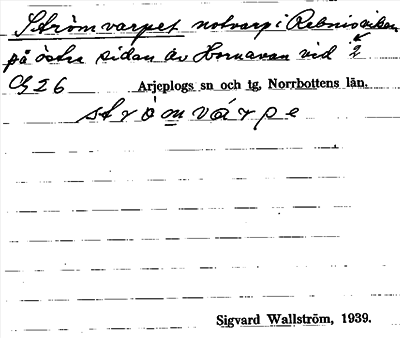 Strömvarpet notvarp i Rebnisviken
på östra sidan av Hornavan vid 2
G 26 Arjeplogs sn och tg, Norrbottens län.
strömvárpe
Sigvard Wallström, 1939.